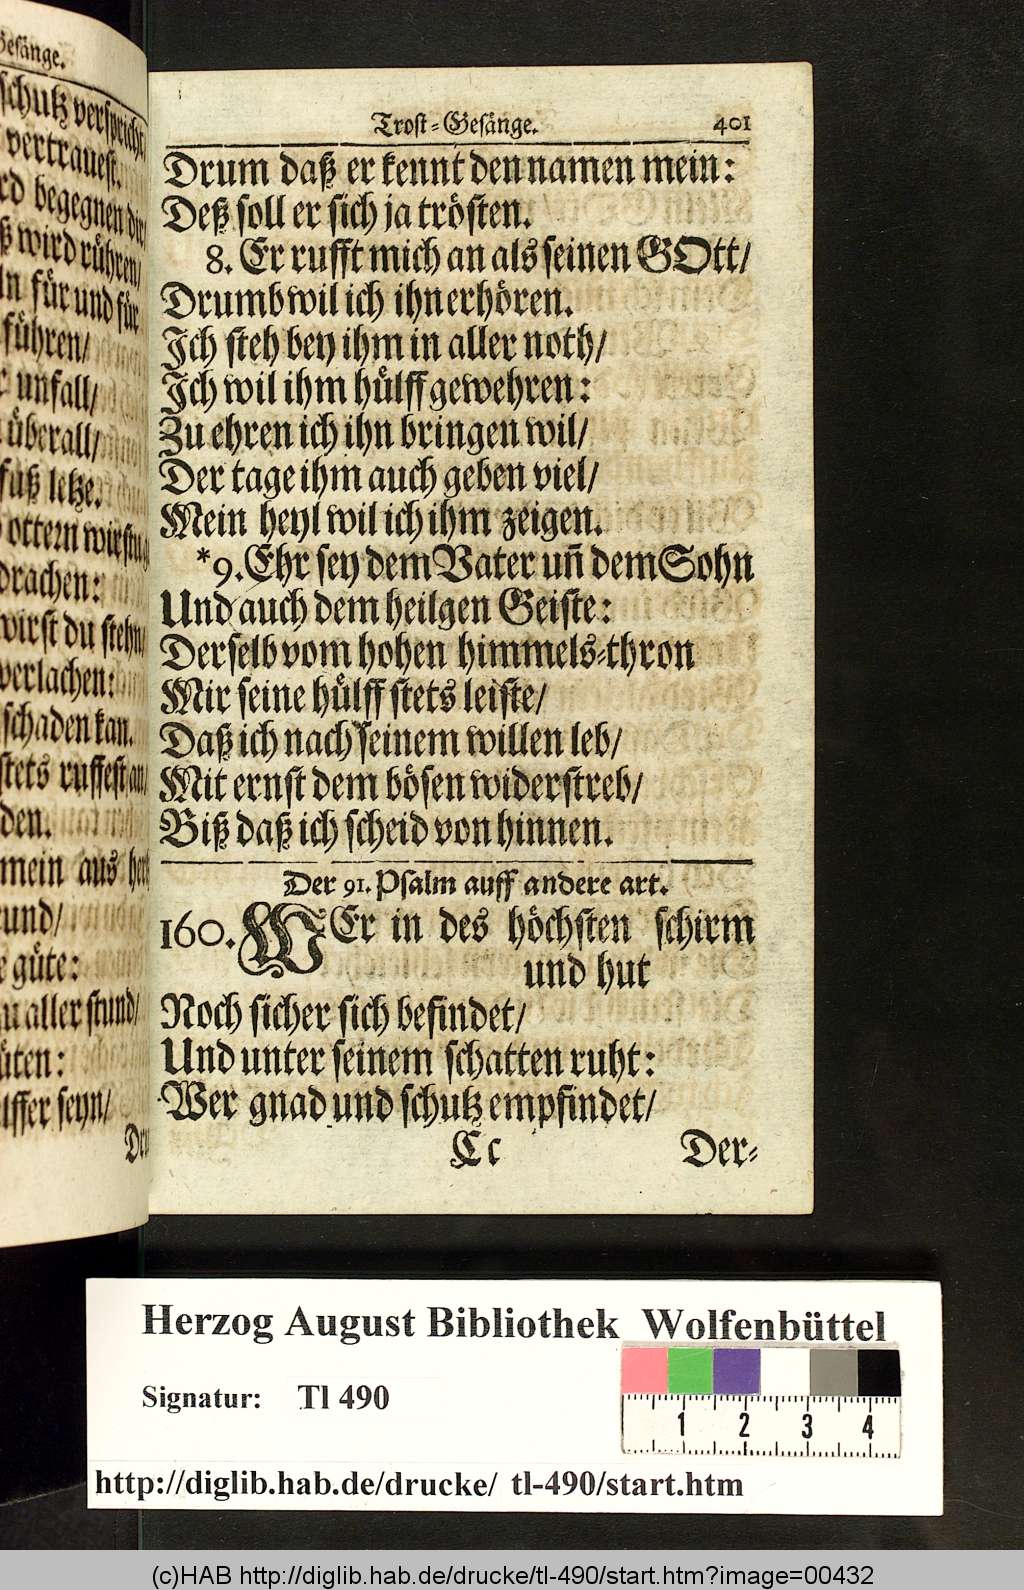 Gesänge.
schutz verspricht
vertrauest.
begegnen dir/
wird rühren/
für und für
führen/
unfall/
überall/
fuß letze.
ottern wirstu
drachen:
wirst du stehn/
verlachen:
schaden kan.
stets ruffest an/
den.
mein aus
güte:
aller stund/
seyn/
Trost-Gesänge. 401
Drum daß er kennt den namen mein:
Deß soll er sich ja trösten.
8. Er rufft mich an als seinen GOtt/
Drumb wil ich ihn erhören.
Ich steh bey ihm in aller noth/
Ich wil ihm hülff gewehren:
Zu ehren ich ihn bringen wil/
Der tage ihm auch geben viel/
Mein heyl wil ich ihm zeigen.
*9. Ehr sey dem Vater uñ dem Sohn
Und auch dem heilgen Geiste:
Derselb vom hohen himmels-thron
Mir seine hülff stets leiste/
Daß ich nach seinem willen leb/
Mit ernst dem bösen widerstreb/
Biß daß ich scheid von hinnen.
Der 91. Psalm auff andere art.
160. WEr in des höchsten schirm
und hut
Noch sicher sich befindet/
Und unter seinem schatten ruht:
Wer gnad und schutz empfindet/
Cc Der-
Herzog August Bibliothek Wolfenbüttel
Signatur: Tl 490
1 2 3 4
http://diglib.hab.de/drucke/ tl-490/start.htm
(c)HAB http://diglib.hab.de/drucke/tl-490/start.htm?image=00432